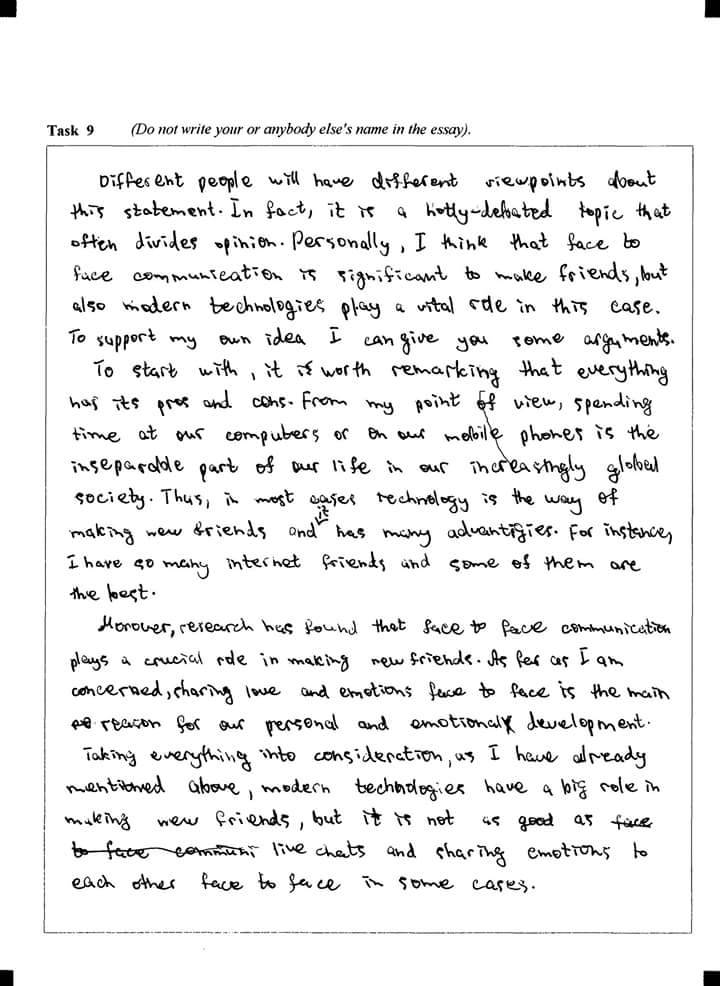 Task 9 (Do not write your or anybody else's name in the essay).
Different people will have different viewpoints about
this statement. In fact, it is a hotly-debated topic that
often divides opinion. Personally, I think that face to
face communication is significant to make friends, but
also modern technologies play a vital role in this case.
To support my own idea I can give you some arguments.
To start with, it is worth remarking that everything
has its pros and cons. From my point of view, spending
time at our computers or on our mobile phones is the
inseparable part of our life in our increasingly global
society. Thus, in most cases technology is the way of
making new friends and it has many advantigies. For instance,
I have so many internet friends and some of them are
the best.
Morover, research has found that face to face communication
plays a crucial role in making new friends. As fer as I am
concerned, sharing love and emotions face to face is the main
reason for our personal and emotional development.
Taking everything into consideration, as I have already
mentioned above, modern technologies have a big role in
making new friends, but it is not as good as face
to face communi live chats and sharing emotions to
each other face to face in some cases.